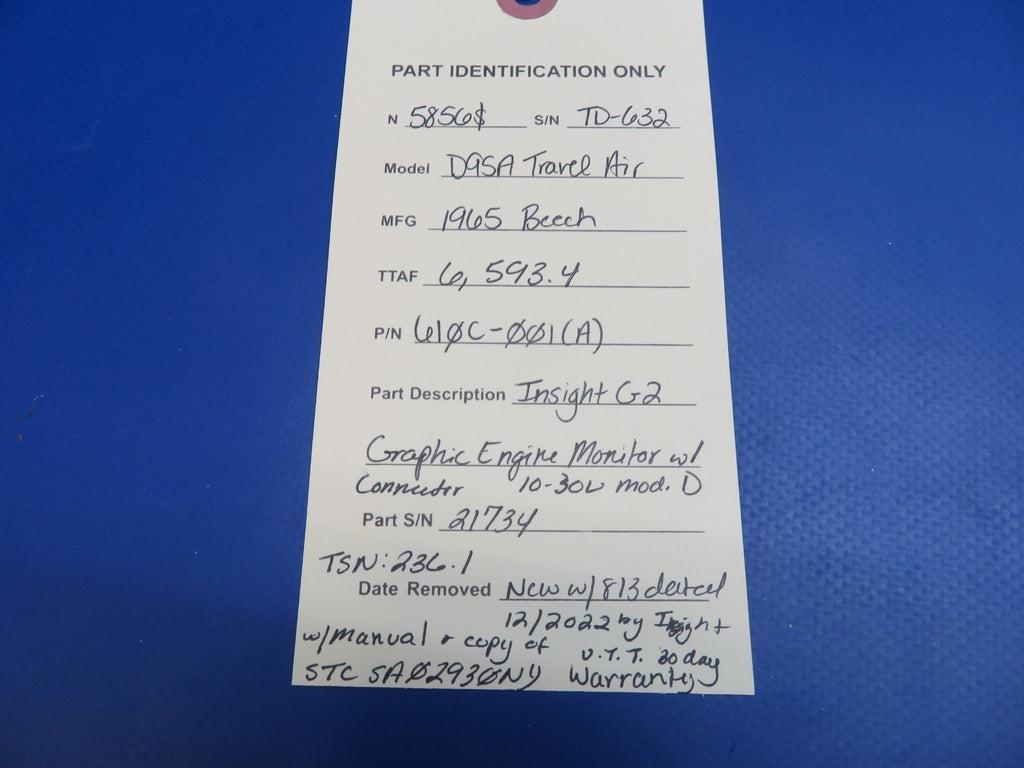 PART IDENTIFICATION ONLY
N 5856$ S/N TD-632
Model D95A Travel Air
MFG 1965 Beech
TTAF 6,593.4
P/N 610C-001(A)
Part Description Insight G2
Graphic Engine Monitor w/
Connector 10-30V mod. D
Part S/N 21734
TSN: 236.1
Date Removed New w/813 dated
12/2022 by Insight
w/manual + copy of U.T.T. 30 day
STC SA02930NY Warranty